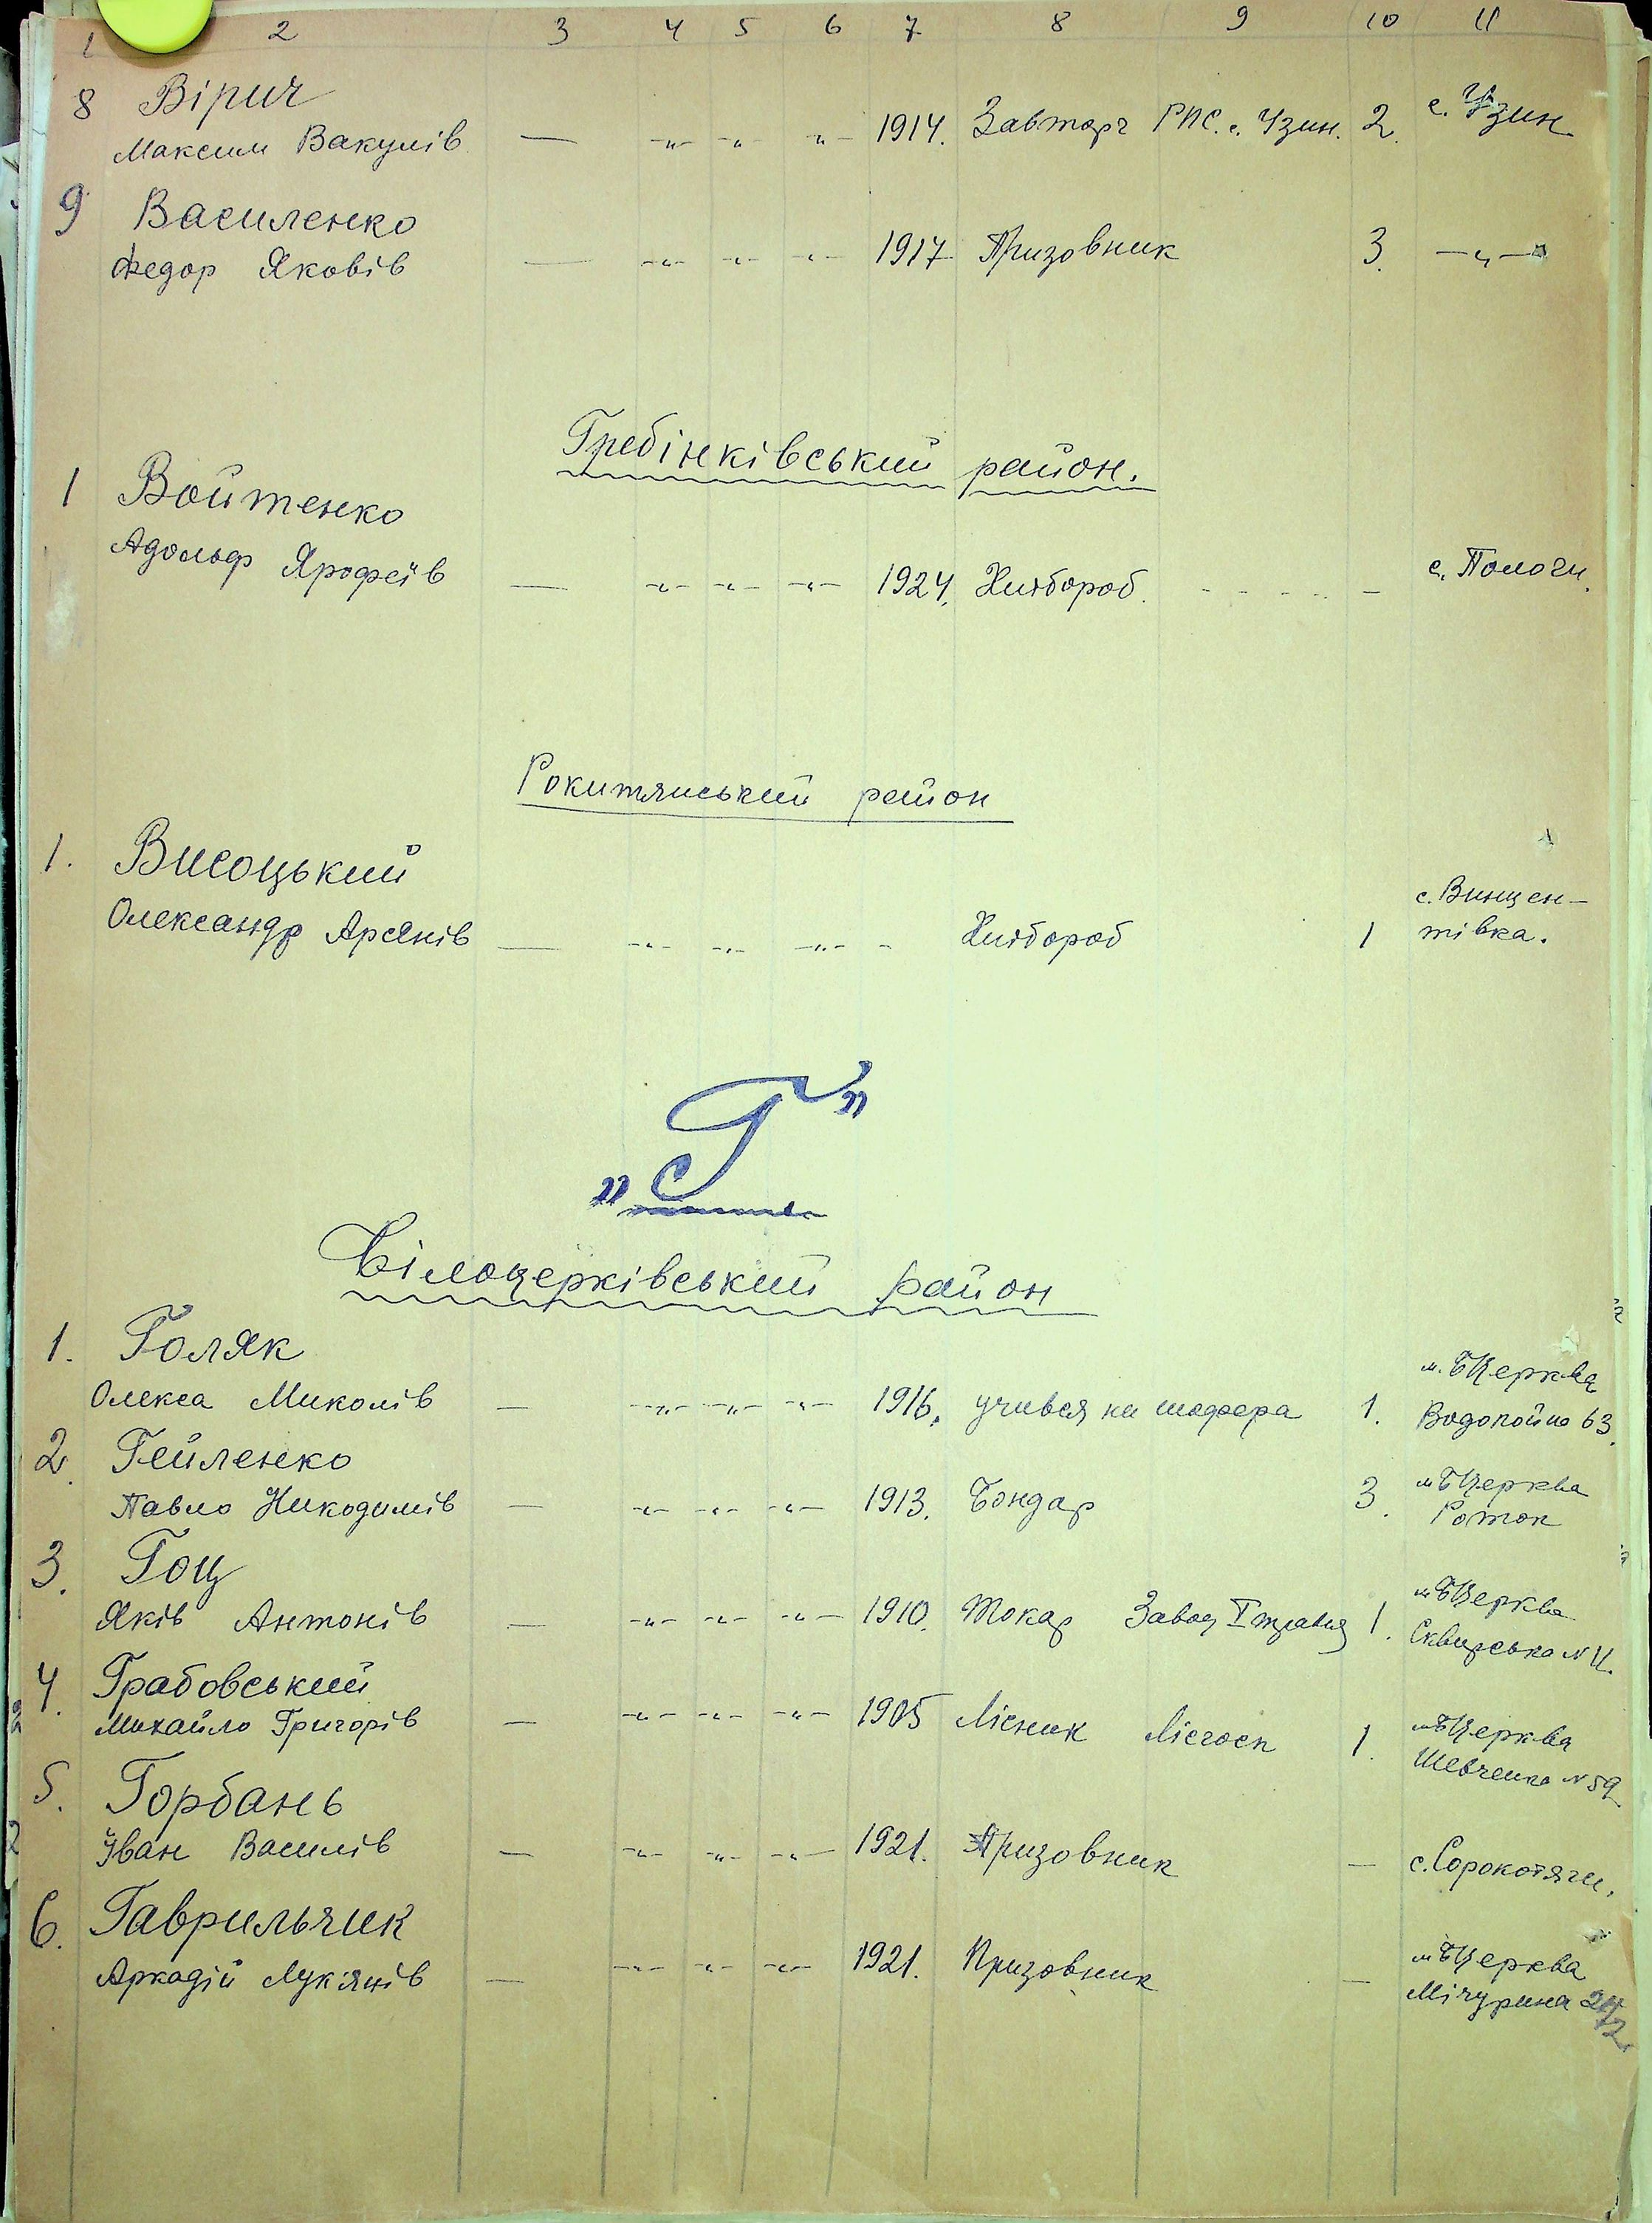 1 2 3 4 5 6 7 8 9 10 11
8 Вірич
Максим Вакулів — -„- -„- „- 1914. Завторг РПС. с. Узин. 2. с. Узин
9 Василенко
Федор Яковів — -„- -„- -„- 1917 Призовник 3. —„—
Гребінківський район.
1 Войтенко
Адольф Ярофеїв — -„- -„- -„- 1924. Хлібороб. - - - - - с. Пологи.
Рокитянський район
1. Висоцький
Олександр Арсянів — -„- -„- -„- - Хлібороб 1 с. Винцен-
тівка.
„Г”
Білоцерківський район
1. Голяк
Олекса Миколів — -„- -„- -„- 1916. учився на шофера 1. м. БЦерква
Водопойна 63.
2. Гейленко
Павло Никодимів — -„- -„- -„- 1913. Бондар 3. м БЦерква
Роток
3. Гоц
Яків Антонів — -„- -„- -„- 1910. Токар Завод I травня 1. м БЦерква
Сквирська № 11.
4. Грабовський
Михайло Григорів — -„- -„- -„- 1905 Лісник Лісгосп 1. м БЦерква
Шевченка № 59
5. Горбань
Іван Василів — -„- -„- -„- 1921. Призовник — с. Сорокотяги.
6. Гаврильчик
Аркадій Лук'янів — -„- -„- -„- 1921. Призовник — м БЦерква
Мічурина